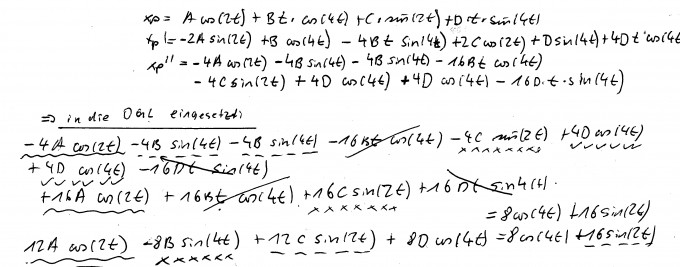 xp = A cos(2t) + Bt · cos(4t) + C · sin(2t) + D t · sin(4t)
xp' = -2A sin(2t) + B cos(4t) - 4Bt sin(4t) + 2C cos(2t) + D sin(4t) + 4D t · cos(4t
xp'' = -4A cos(2t) - 4B sin(4t) - 4B sin(4t) - 16Bt cos(4t)
- 4C sin(2t) + 4D cos(4t) + 4D cos(4t) - 16D · t · sin(4t)
⇒ in die DGL eingesetzt:
-4A cos(2t) - 4B sin(4t) - 4B sin(4t) - 16Bt cos(4t) - 4C sin(2t) + 4D cos(4t)
+ 4D cos(4t) - 16Dt sin(4t)
+ 16A cos(2t) + 16Bt cos(4t) + 16C sin(2t) + 16Dt sin4(t).
= 8cos(4t) + 16sin(2t)
12A cos(2t) - 8B sin(4t) + 12C sin(2t) + 8D cos(4t) = 8cos(4t) + 16sin(2t)